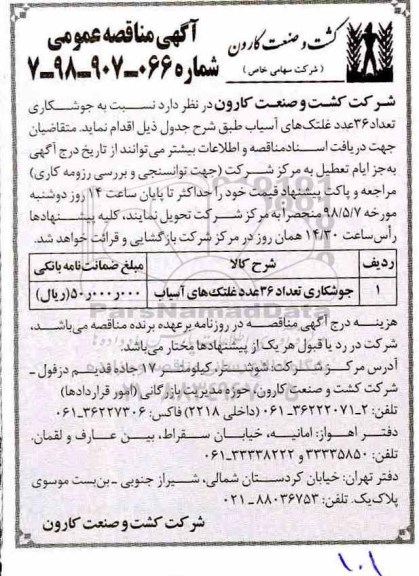 آگهی مناقصه عمومی
شماره ۰۶۶-۹۰۷-۹۸-۷
کشت و صنعت کارون
( شرکت سهامی خاص )
شرکت کشت و صنعت کارون در نظر دارد نسبت به جوشکاری
تعداد ۳۶ عدد غلتک‌های آسیاب طبق شرح جدول ذیل اقدام نماید. متقاضیان
جهت دریافت اسناد مناقصه و اطلاعات بیشتر می‌توانند از تاریخ درج آگهی
به‌جز ایام تعطیل به مرکز شرکت (جهت توانسنجی و بررسی رزومه کاری)
مراجعه و پاکت پیشنهاد قیمت خود را حداکثر تا پایان ساعت ۱۴ روز دوشنبه
مورخه ۹۸/۵/۷ منحصراً به مرکز شرکت تحویل نمایند، کلیه پیشنهادها
رأس ساعت ۱۴/۳۰ همان روز در مرکز شرکت بازگشایی و قرائت خواهد شد.
ردیف شرح کالا مبلغ ضمانت‌نامه بانکی
۱ جوشکاری تعداد ۳۶ عدد غلتک‌های آسیاب ۵۰ر۰۰۰ر۰۰۰ (ریال)
ParsNamadData
هزینه درج آگهی مناقصه در روزنامه برعهده برنده مناقصه می‌باشد،
شرکت در رد یا قبول هر یک از پیشنهادها مختار می‌باشد.
آدرس مرکز شرکت: شوشتر، کیلومتر ۱۷ جاده قدیم دزفول -
شرکت کشت و صنعت کارون، حوزه مدیریت بازرگانی (امور قراردادها)
تلفن: ۲-۳۶۲۲۲۰۷۱-۰۶۱ (داخلی ۲۲۱۸) فاکس: ۳۶۲۲۷۳۰۶-۰۶۱
دفتر اهواز: امانیه، خیابان سقراط، بین عارف و لقمان.
تلفن: ۳۳۳۳۵۸۵۰ و ۳۳۳۳۸۲۲۲-۰۶۱
دفتر تهران: خیابان کردستان شمالی، شیراز جنوبی - بن‌بست موسوی
پلاک یک. تلفن: ۸۸۰۳۶۷۵۳-۰۲۱
شرکت کشت و صنعت کارون